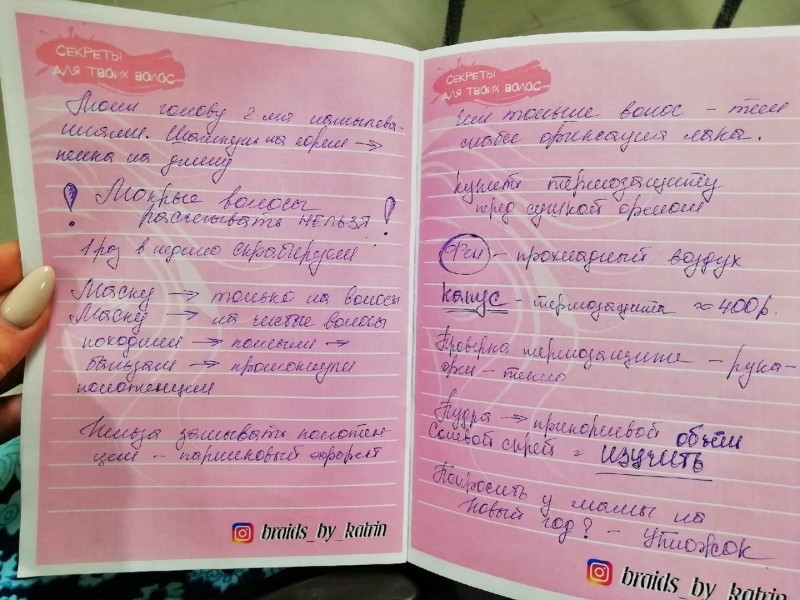 СЕКРЕТЫ
ДЛЯ ТВОИХ ВОЛОС
Моем голову 2 мя намылева-
ниями. Шампунь на корни →
пенка на длину
! Мокрые волосы
расчёсывать НЕЛЬЗЯ !
1 раз в неделю скрабируем
Маску → только на волосы
Маску → на чистые волосы
походили → помыли →
бальзам → промокнули
полотенцем
Нельзя заматывать полотен-
цем - парниковый эффект
braids_by_katrin
СЕКРЕТЫ
ДЛЯ ТВОИХ ВОЛОС
Чем тоньше волос - тем
слабее фиксация лака.
купить термозащиту
перед сушкой феном
Фен - прохладный воздух
капус - термозащита ≈ 400р.
Проверка термозащите - рука-
фен - тепло
Пудра → прикорневой объём
Солевой спрей = ИЗУЧИТЬ
Попросить у мамы на
Новый год? - Утюжок
braids_by_katrin